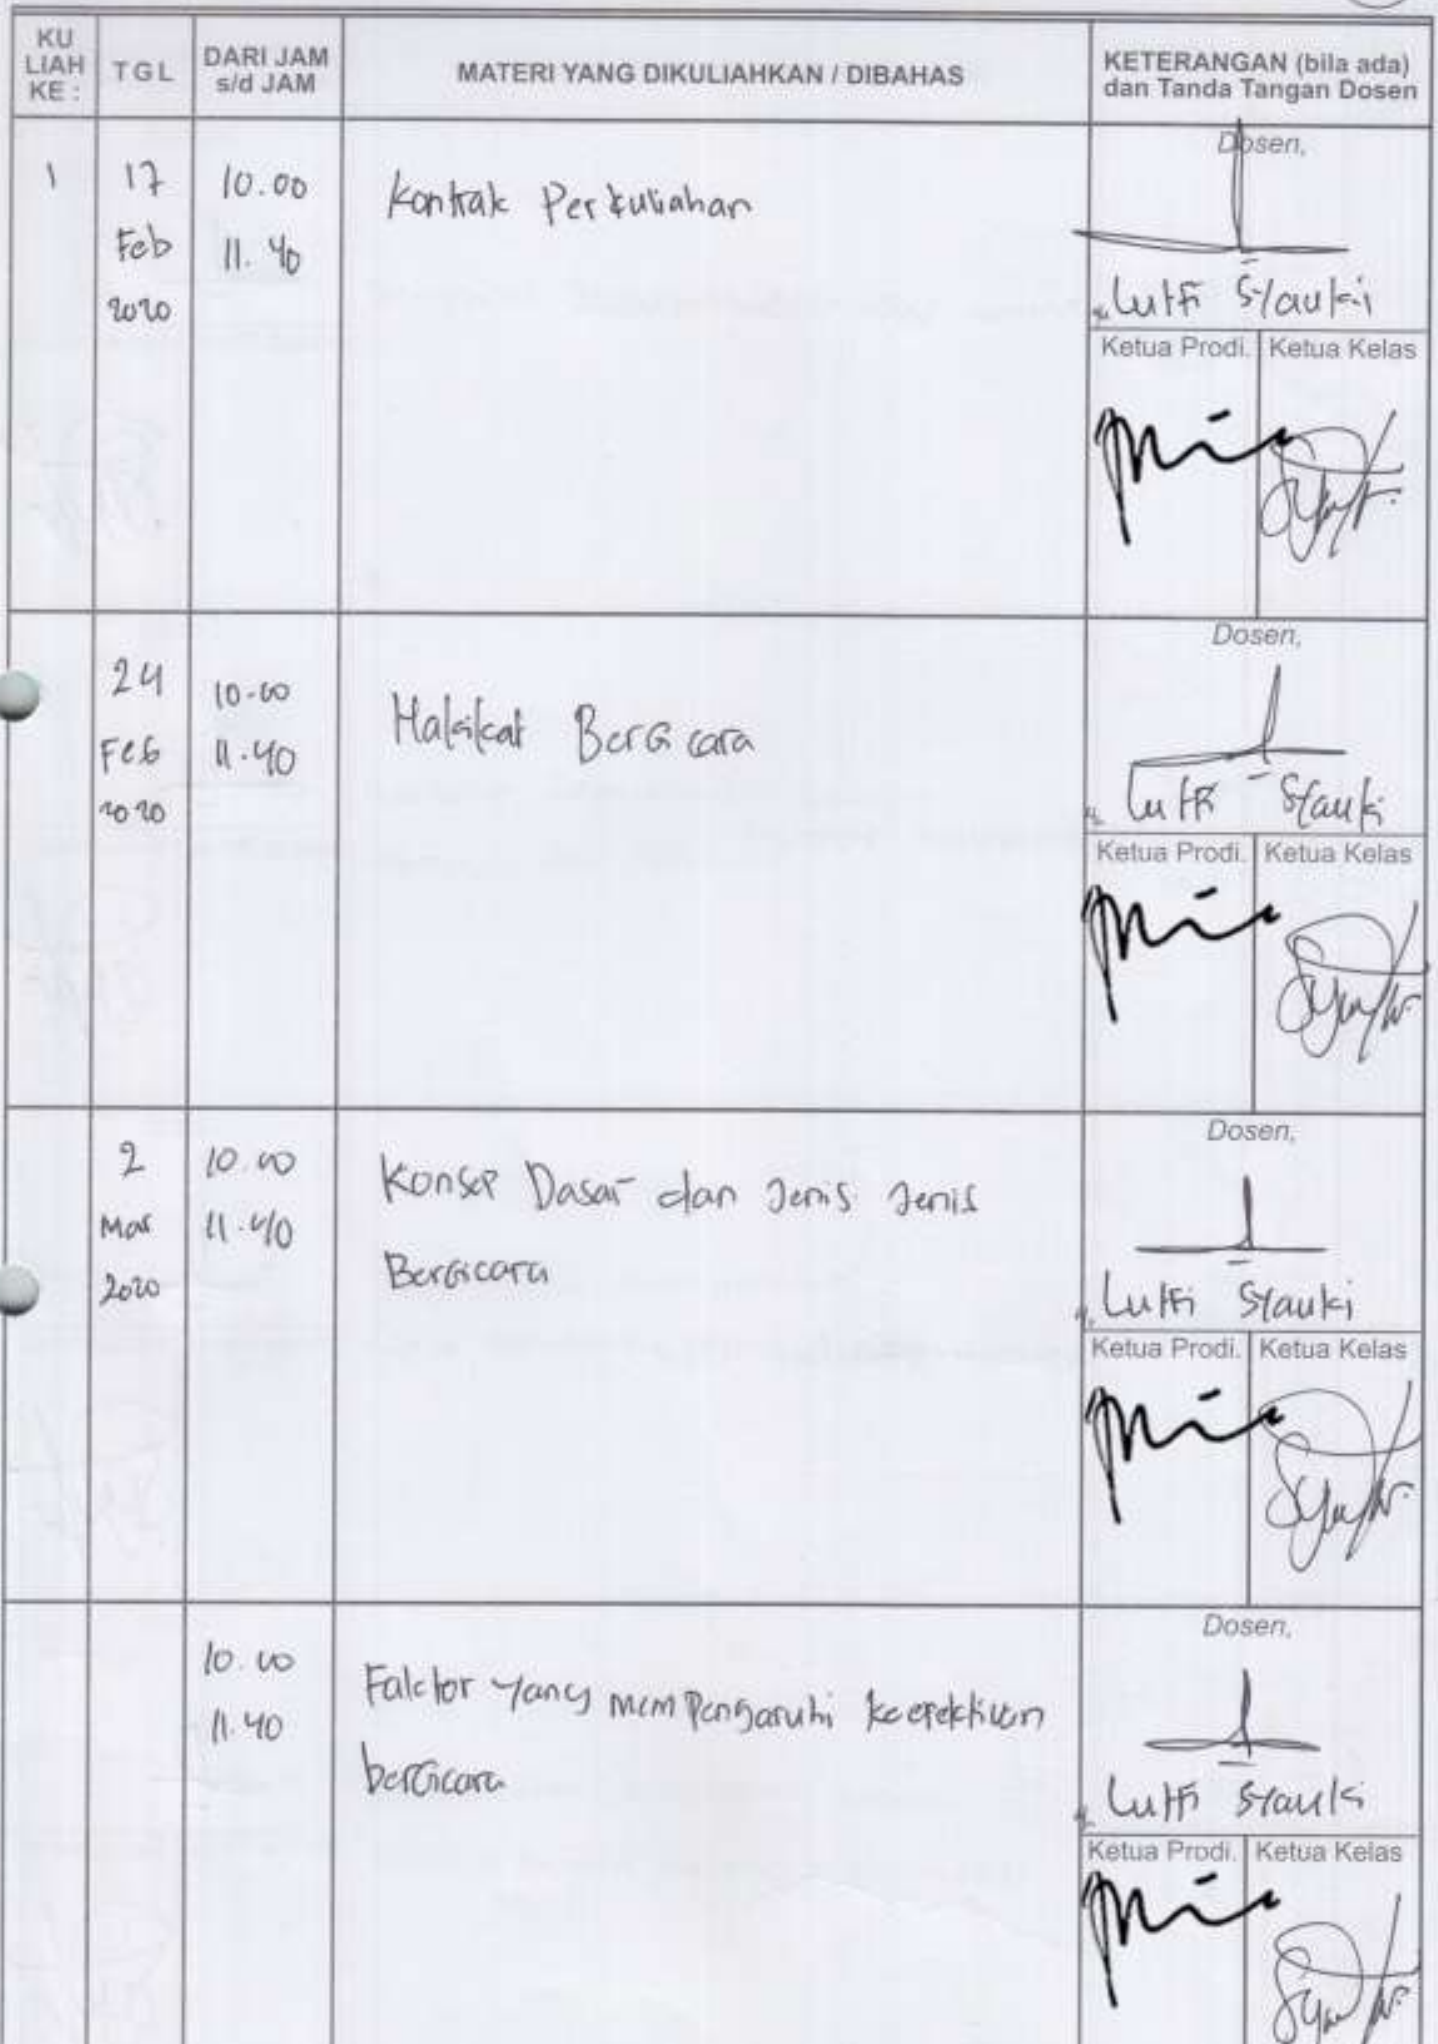 KU LIAH KE :
TGL
DARI JAM s/d JAM
MATERI YANG DIKULIAHKAN / DIBAHAS
KETERANGAN (bila ada) dan Tanda Tangan Dosen
1
17
Feb
2020
10.00
11.40
Kontrak Perkuliahan
Dosen,
Lutfi Syauki
Ketua Prodi.
Ketua Kelas
24
Feb
2020
10.00
11.40
Hakikat Bericara
Dosen,
Lutfi Syauki
Ketua Prodi.
Ketua Kelas
2
Mar
2020
10.00
11.40
Konsep Dasar dan Jenis Jenis
Bericara
Dosen,
Lutfi Syauki
Ketua Prodi.
Ketua Kelas
10.00
11.40
Faktor yang mempengaruhi keefektivan
bericara
Dosen,
Lutfi Syauki
Ketua Prodi.
Ketua Kelas